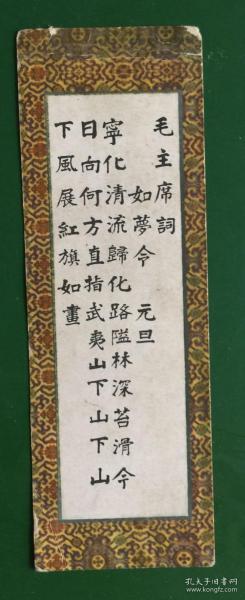 毛主席詞
如夢令 元旦
寧化清流歸化路隘林深苔滑今
日向何方直指武夷山下山下山
下風展紅旗如畫
孔夫子旧书网